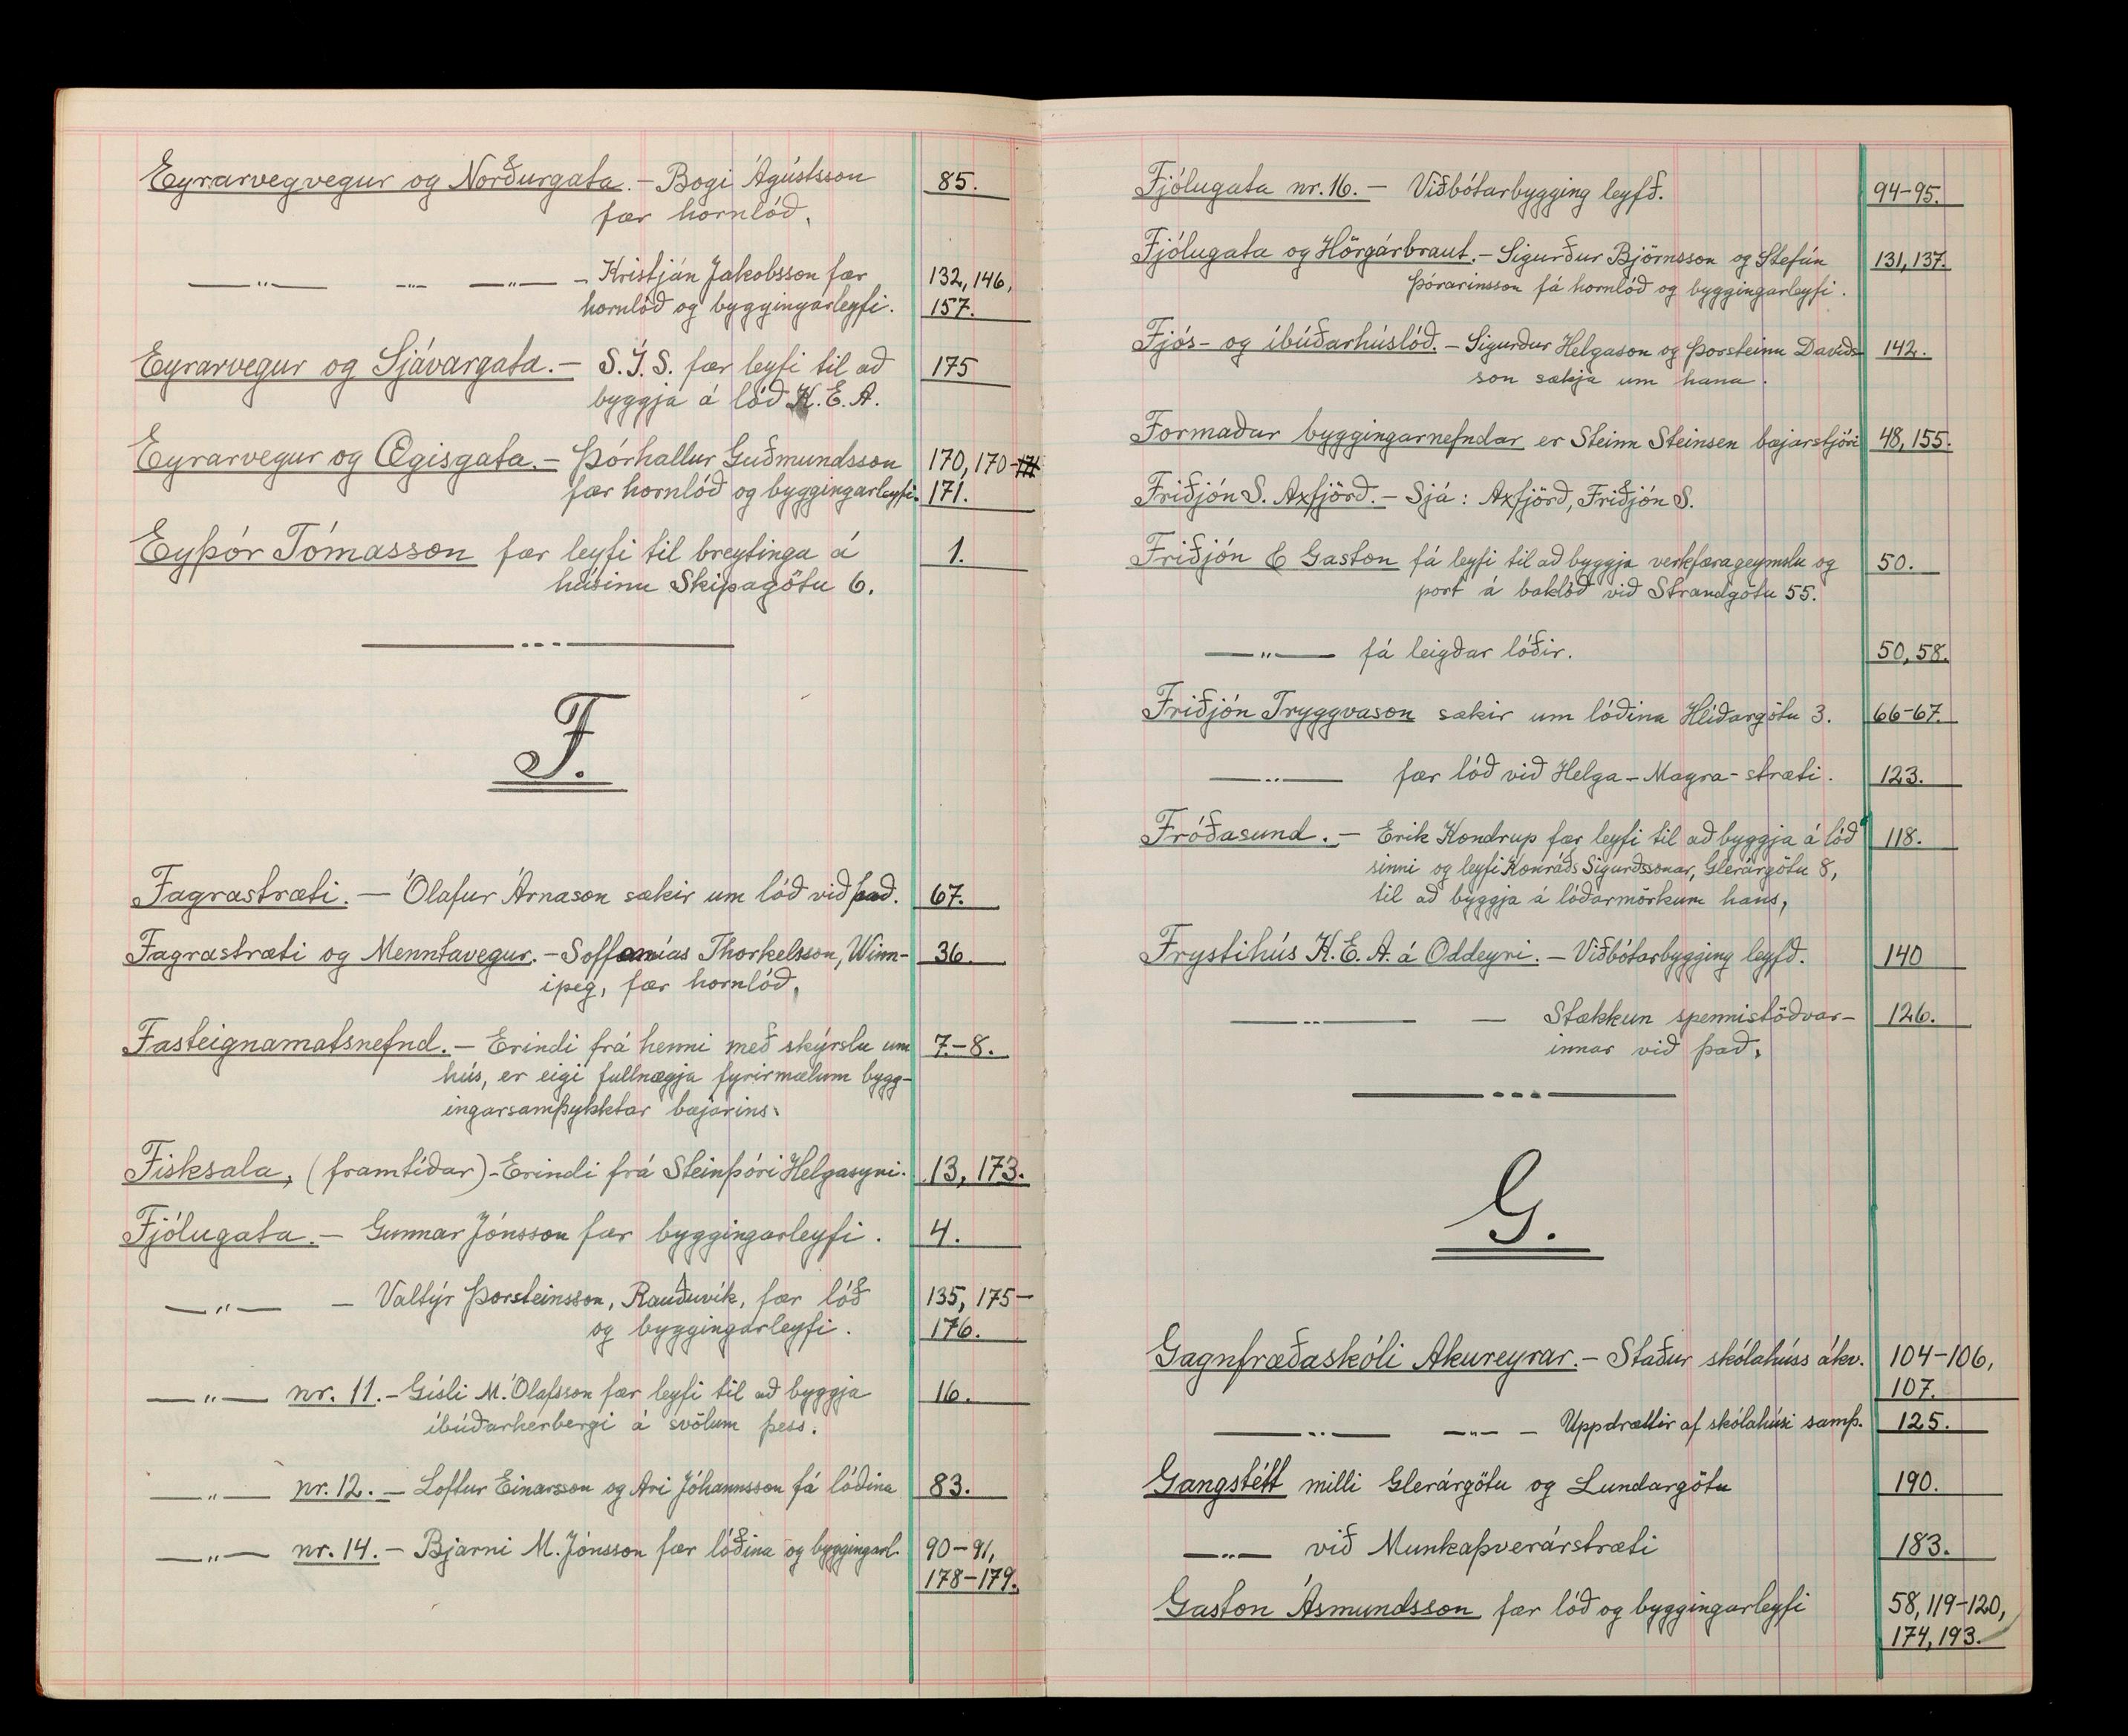 Eyrarvegvegur og Norðurgata. – Bogi Ágústsson 85.
fær hornlóð.
—„— -„- —„— – Kristján Jakobsson fær 132, 146,
hornlóð og byggingarleyfi. 157.
Eyrarvegur og Sjávargata. – S.Í.S. fær leyfi til að 175
byggja á lóð K.E.A.
Eyrarvegur og Ægisgata. – Þórhallur Guðmundsson 170, 170-171
fær hornlóð og byggingarleyfi. 171.
Eyþór Tómasson fær leyfi til breytinga á 1.
húsinu Skipagötu 6.
F.
Fagrastræti. – Ólafur Árnason sækir um lóð við það. 67.
Fagrastræti og Menntavegur. – Soffonías Thorkelsson, Winn- 36.
ipeg, fær hornlóð.
Fasteignamatsnefnd. – Erindi frá henni með skýrslu um 7.-8.
hús, er eigi fullnægja fyrirmælum bygg-
ingarsamþykktar bæjarins.
Fisksala, (framtíðar) – Erindi frá Steinþóri Helgasyni. 13, 173.
Fjólugata. – Gunnar Jónsson fær byggingarleyfi. 4.
—„— – Valtýr Þorsteinsson, Rauðuvík, fær lóð 135, 175-
og byggingarleyfi. 176.
—„— nr. 11. – Gísli M. Ólafsson fær leyfi til að byggja 16.
íbúðarherbergi á svölum þess.
—„— nr. 12. – Loftur Einarsson og Ari Jóhannsson fá lóðina 83.
—„— nr. 14. – Bjarni M. Jónsson fær lóðina og byggingarl. 90-91,
178-179.
Fjólugata nr. 16. – Viðbótarbygging leyfð. 94-95.
Fjólugata og Hörgárbraut. – Sigurður Björnsson og Stefán 131, 137.
Þórarinsson fá hornlóð og byggingarleyfi.
Fjós- og íbúðarhúslóð. – Sigurður Helgason og Þorsteinn Davíðs- 142.
son sækja um hana.
Formaður byggingarnefndar er Steinn Steinsen bæjarstjóri 48, 155.
Friðjón S. Axfjörð. – Sjá: Axfjörð, Friðjón S.
Friðjón & Gaston fá leyfi til að byggja verkfærageymslu og 50.
port á baklóð við Strandgötu 55.
—„— fá leigðar lóðir. 50, 58.
Friðjón Tryggvason sækir um lóðina Hlíðargötu 3. 66-67.
—„— fær lóð við Helga-Magra-stræti. 123.
Fróðasund. – Erik Kondrup fær leyfi til að byggja á lóð 118.
sinni og leyfi Konráðs Sigurðssonar, Glerárgötu 8,
til að byggja á lóðarmörkum hans,
Frystihús K.E.A. á Oddeyri. – Viðbótarbygging leyfð. 140
—„— – Stækkun spennistöðvar- 126.
innar við það.
G.
Gagnfræðaskóli Akureyrar. – Staður skólahúss ákv. 104-106,
107.
—„— -„- – Uppdrættir af skólahúsi samþ. 125.
Gangstétt milli Glerárgötu og Lundargötu 190.
—„— við Munkaþverárstræti 183.
Gaston Ásmundsson fær lóð og byggingarleyfi 58, 119-120,
174, 193.